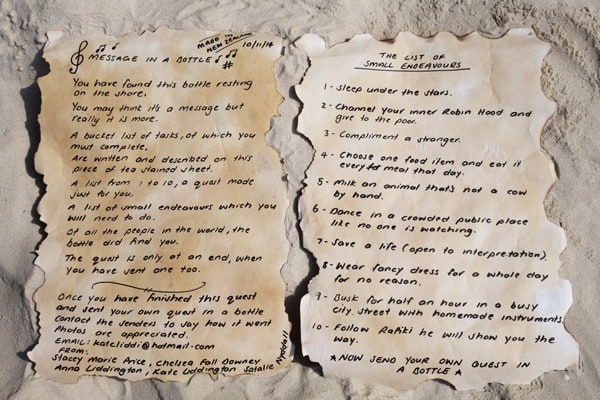 MADE IN
NEW ZEALAND
10/11/14
MESSAGE IN A BOTTLE
#
You have found this bottle resting
on the shore.
You may think it's a message but
really it is more.
A bucket list of tasks, of which you
must complete.
Are written and described on this
piece of tea stained sheet.
A list from 1 to 10, a quest made
just for you.
A list of small endeavours which you
will need to do.
Of all the people in the world, the
bottle did find you.
The quest is only at an end, when
you have sent one too.
Once you have finished this quest
and sent your own quest in a bottle
Contact the senders to say how it went
Photos are appreciated.
EMAIL: kateliddi@hotmail.com
FROM:
Stacey Marie Price, Chelsea Fall Downey
Anna Liddington, Kate Liddington, Natalie
THE LIST OF
SMALL ENDEAVOURS
1 - Sleep under the stars.
2 - Channel your inner Robin Hood and
give to the poor.
3 - Compliment a stranger.
4 - Choose one food item and eat it
every meal that day.
5 - Milk an animal that's not a cow
by hand.
6 - Dance in a crowded public place
like no one is watching.
7 - Save a life (open to interpretation).
8 - Wear fancy dress for a whole day
for no reason.
9 - Busk for half an hour in a busy
city street with homemade instruments.
10 - Follow Rafiki he will show you the
way.
*NOW SEND YOUR OWN QUEST IN
A BOTTLE *